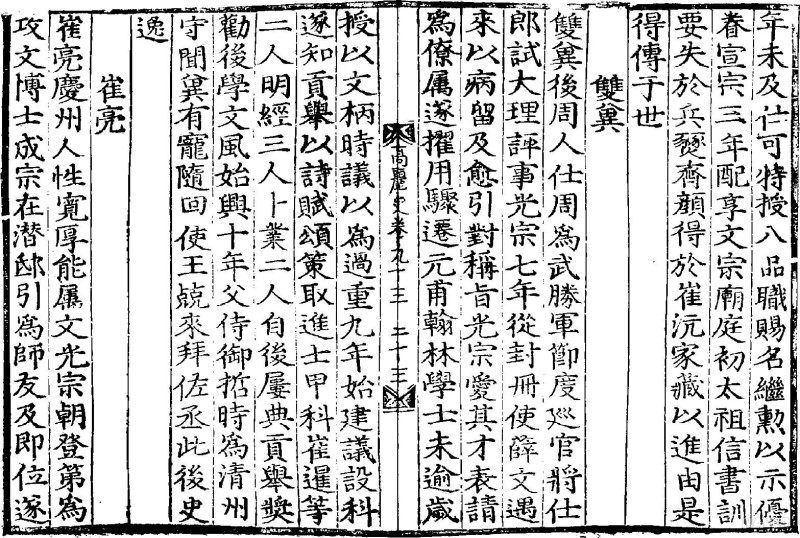 年未及仕可特授八品職賜名繼勲以示優
眷宣宗三年配享文宗廟庭初太祖信書訓
要失於兵燹齊顔得於崔沆家藏以進由是
得傳于世
雙冀
雙冀後周人仕周爲武勝軍節度巡官將仕
郎試大理評事光宗七年從封冊使薛文遇
來以病留及愈引對稱旨光宗愛其才表請
爲僚屬遂擢用驟遷元甫翰林學士未逾歲
高麗史卷九十三 二十三
授以文柄時議以爲過重九年始建議設科
遂知貢舉以詩賦頌策取進士甲科崔暹等
二人明經三人卜業二人自後屢典貢舉奬
勸後學文風始興十年父侍御哲時爲清州
守聞冀有寵隨回使王兢來拜佐丞此後史
逸
崔亮
崔亮慶州人性寬厚能屬文光宗朝登第爲
攻文博士成宗在潛邸引爲師友及即位遂